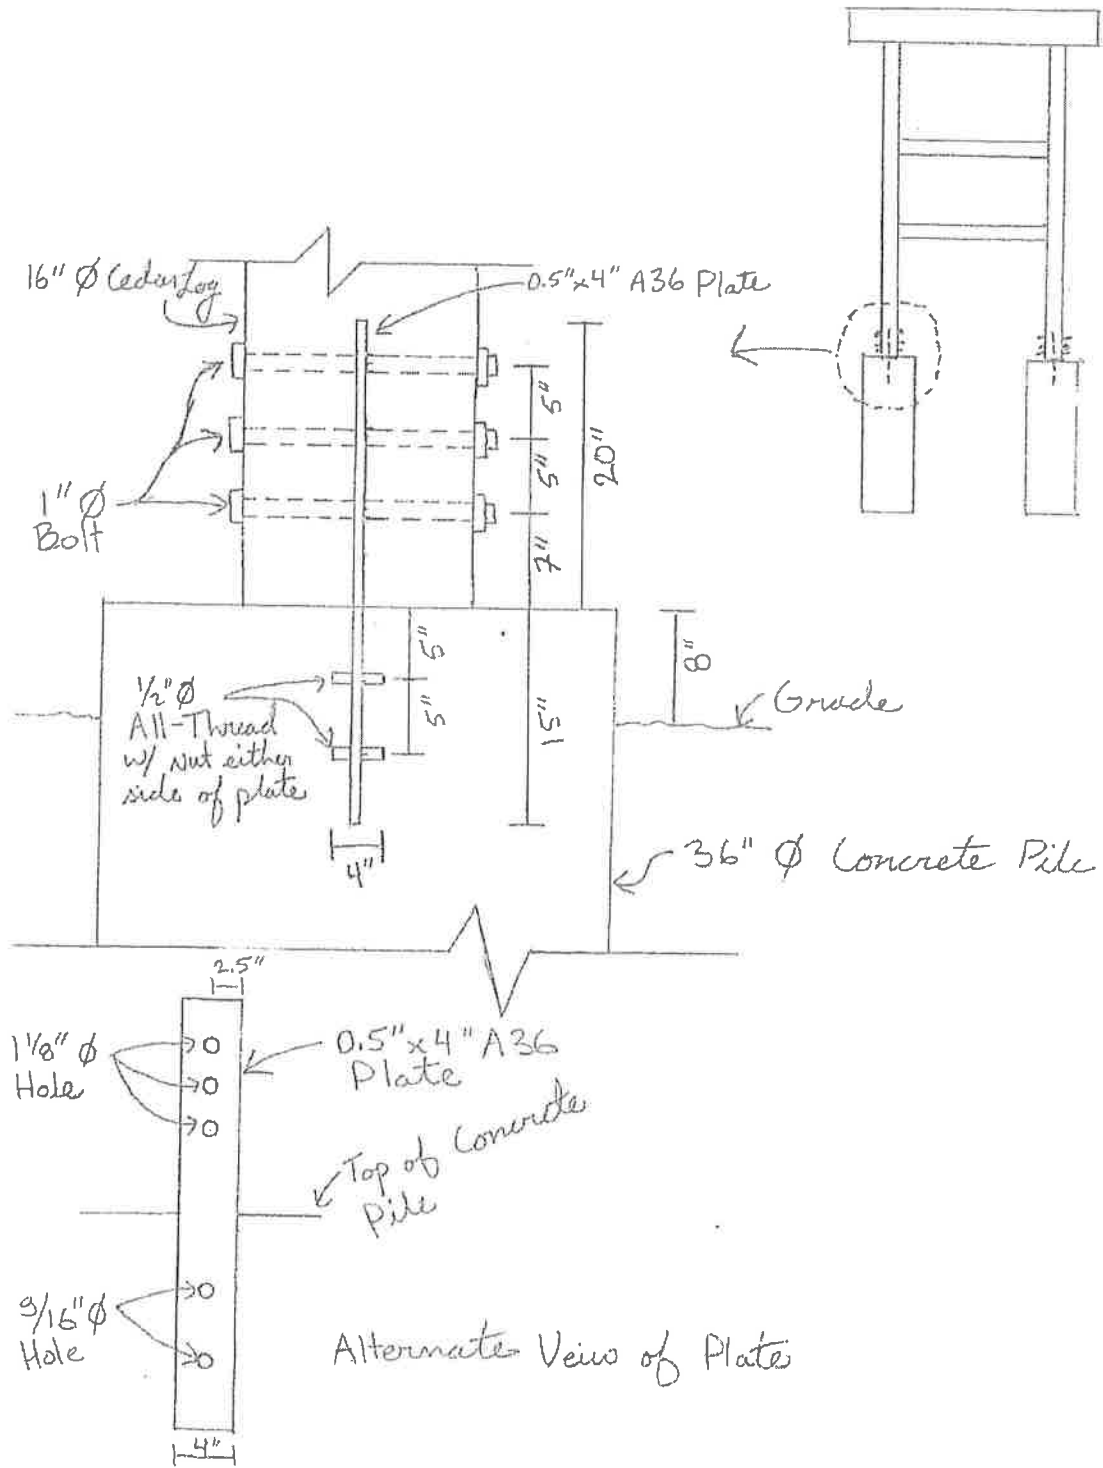 16" Ø Cedar Log
0.5"x4" A36 Plate
1" Ø
Bolt
5"
5"
7"
20"
5"
5"
15"
8"
Grade
1/2" Ø
All-Thread
w/ nut either
side of plate
4"
36" Ø Concrete Pile
2.5"
1 1/8" Ø
Hole
0.5"x4" A36
Plate
Top of Concrete
Pile
9/16" Ø
Hole
Alternate Veiw of Plate
4"